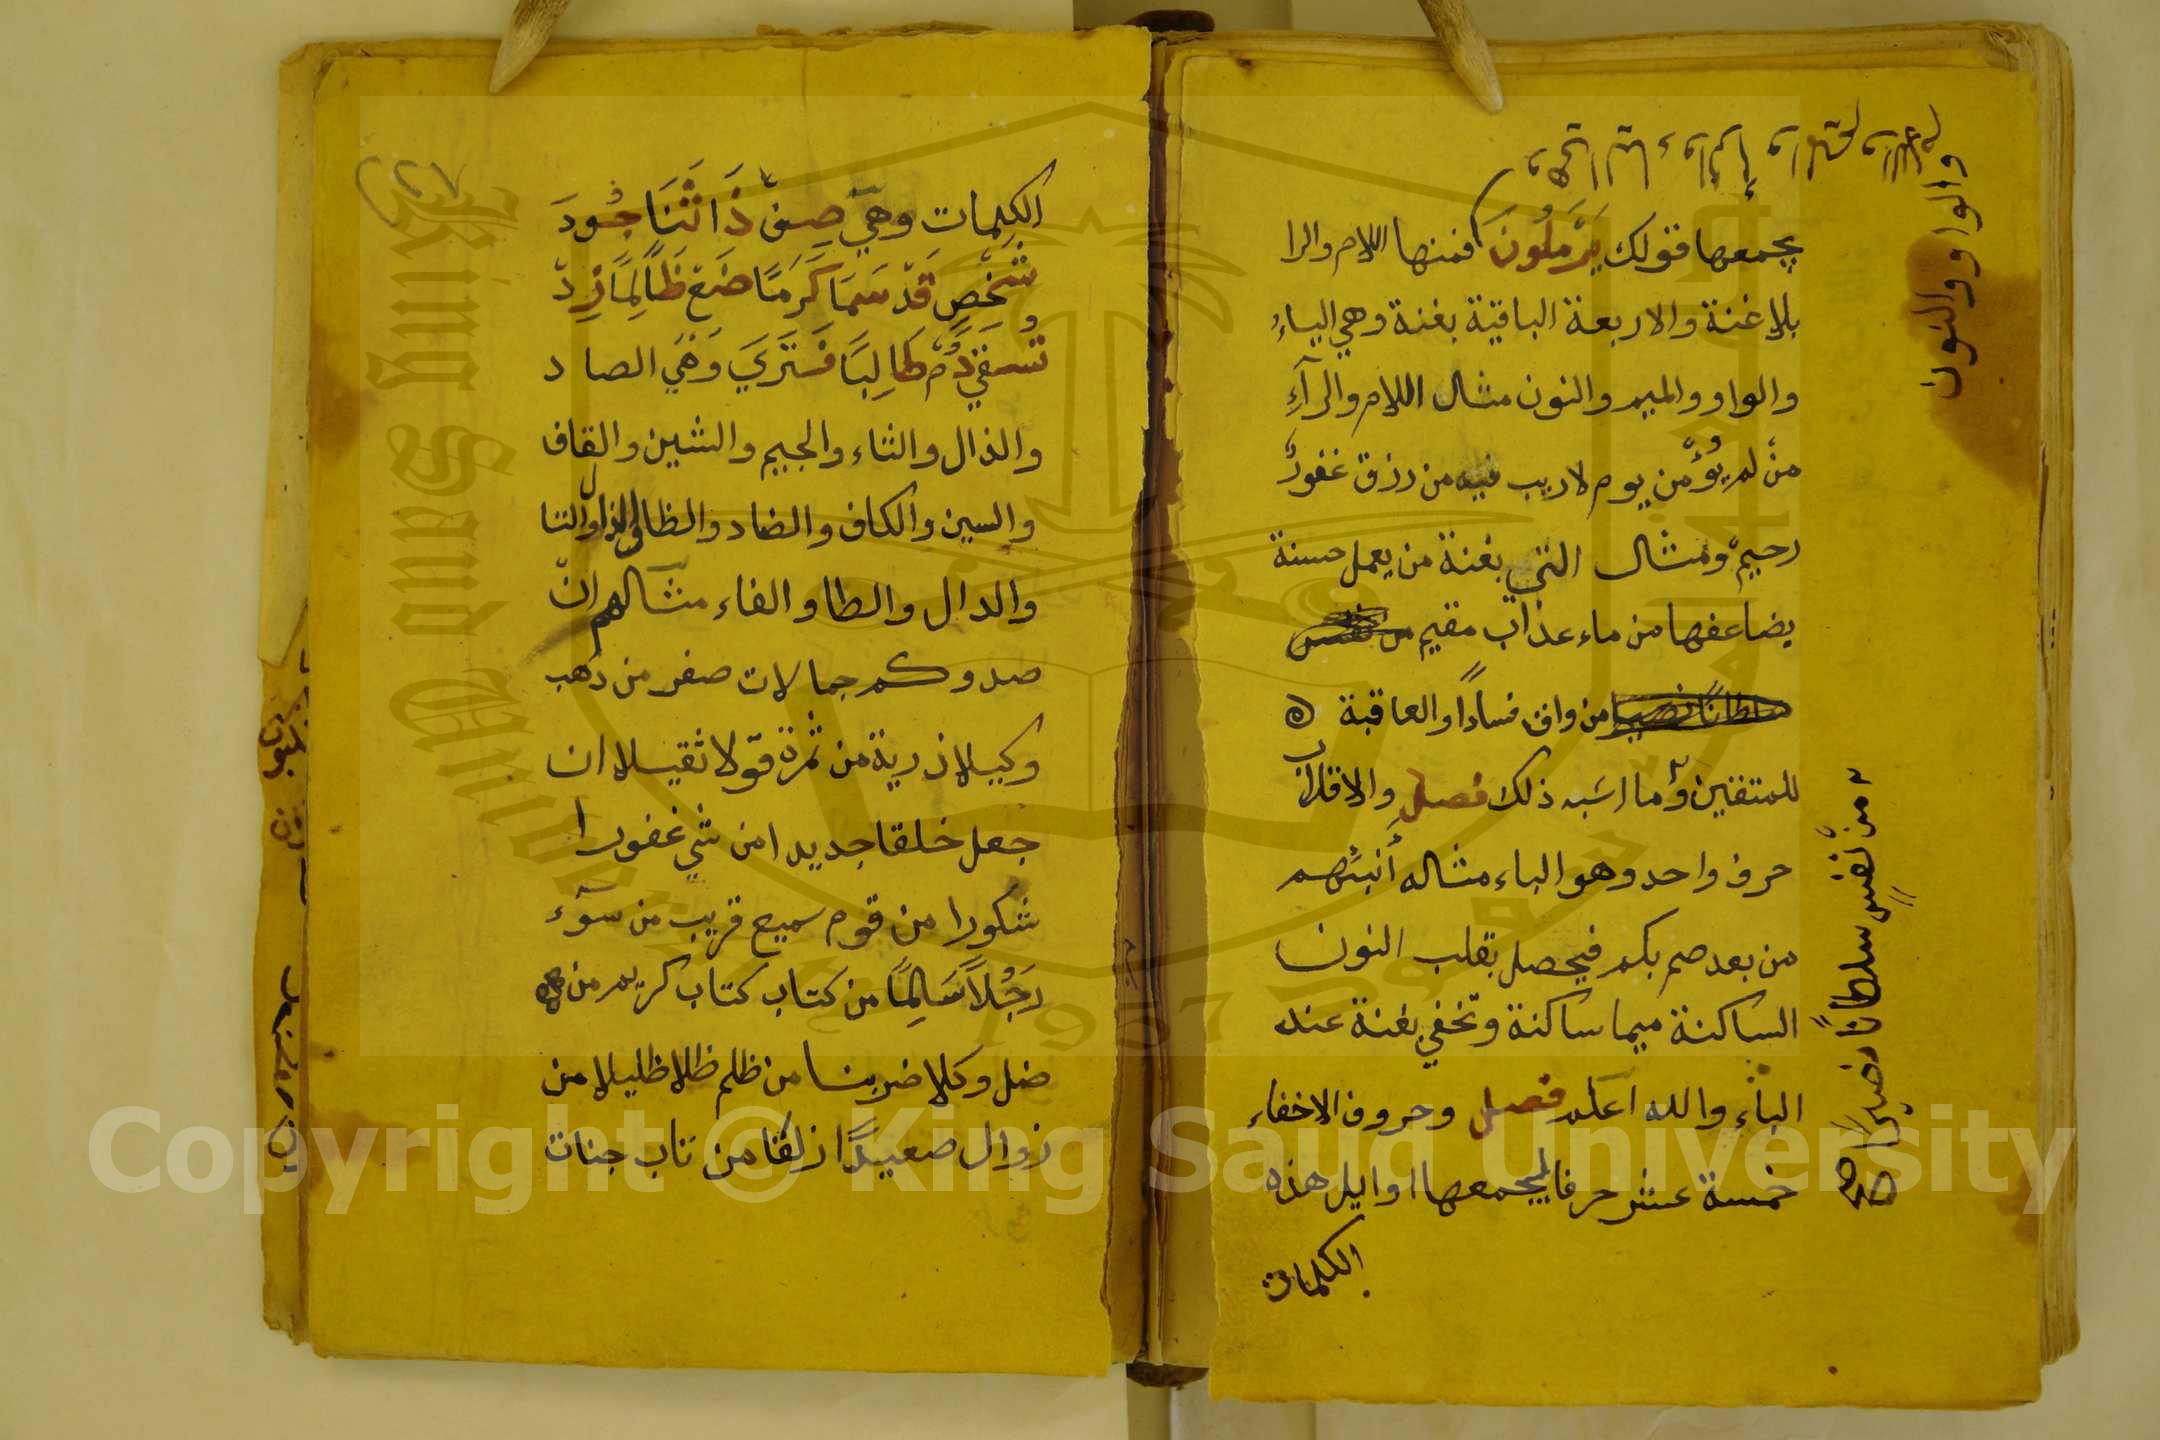 والواو والنون
يجمعها قولك يَرْمَلُونَ فمنها اللام والرا
بلا غنة والاربعة الباقية بغنة وهي الياء
والواو والميم والنون مثال اللام والرآءِ
منْ لم يؤمن يوم لا ريب فيه من رزق غفورٌ
رحيمٌ ومثال التي بغنة من يعمل حسنة
يضاعفها من ماء عذاب مقيم من
من واق فسادًا والعاقبة
للمتقين وما اشبه ذلك فصل والاقلاب
حرف واحد وهو الباء مثاله أنبئهم
من بعد صم بكم فيحصل بقلب النون
الساكنة ميما ساكنة وتخفي بغنة عند
الباء والله اعلم فصل وحروف الاخفاء
خمسة عشر حرفا يجمعها اوايل هذه
الكلمات
من نفسٍ سلطانًا نصيرًا صح
الكلمات وهي صِفْ ذَا ثَنَا جُودَ
شَخْصٍ قَدْ سَمَا كَرَمًا ضَعْ ظَالِمًا زِدْ
تُسْقَي دُمْ طَالِبًا فَتَرَيَ وَهَي الصاد
والذال والثاء والجيم والشين والقاف
والسين والكاف والضاد والظا والزا والتا
والدال والطا والفاء مثالهم انْ
صدوكم جمالات صفر من ذهب
وكيلا ذرية من ثمرة قولا ثقيلا ان
جعل خلقا جديدا من شي غفورا
شكورا من قوم سميع قريب من سوٓء
رَجُلًا سَالِمًا من كتاب كتاب كريم من
ضل وكلا ضربنا من ظلم ظلا ظليلا من
زوال صعيدًا زلقا من تاب جنات
Copyright © King Saud University
King Saud University
1957